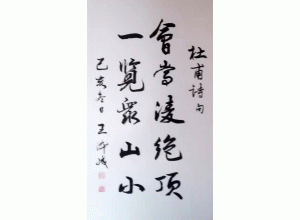 杜甫詩句
會當凌絕頂
一覽眾山小
己亥冬日王